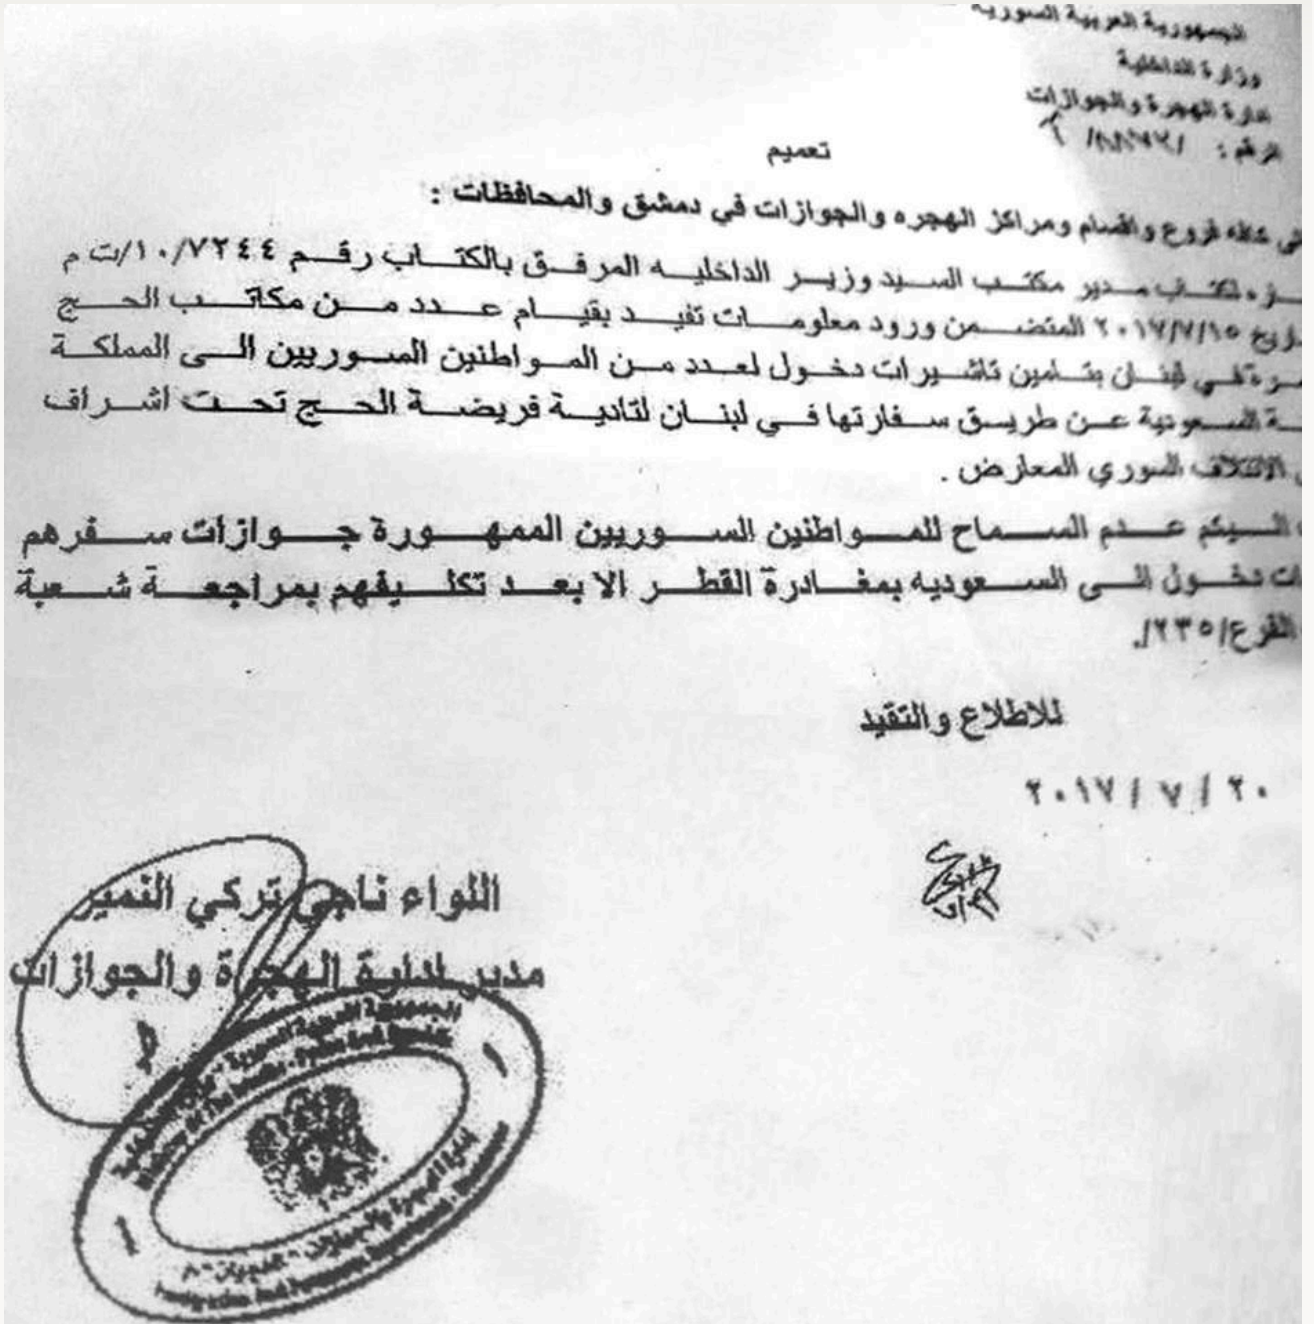 الجمهورية العربية السورية
وزارة الداخلية
ادارة الهجرة والجوازات
الرقم :
تعميم
الى كافة فروع واقسام ومراكز الهجره والجوازات في دمشق والمحافظات :
لكتاب مدير مكتب السيد وزير الداخليه المرفق بالكتاب رقم ١٠/٧٢٤٤/ت م
٢٠١٧/٧/١٥ المتضمن ورود معلومات تفيد بقيام عدد من مكاتب الحج
في لبنان بتامين تاشيرات دخول لعدد من المواطنين السوريين الى المملكة
السعودية عن طريق سفارتها في لبنان لتادية فريضة الحج تحت اشراف
الائتلاف السوري المعارض .
اليكم عدم السماح للمواطنين السوريين الممهورة جوازات سفرهم
دخول الى السعوديه بمغادرة القطر الا بعد تكليفهم بمراجعة شعبة
الفرع/٢٣٥/.
للاطلاع والتقيد
٢٠ / ٧ / ٢٠١٧
اللواء ناجي تركي النمير
مدير ادارة الهجرة والجوازات
الجمهورية العربية السورية
Ministry Of The Interior
ادارة الهجرة والجوازات
Immigration And Passports Department